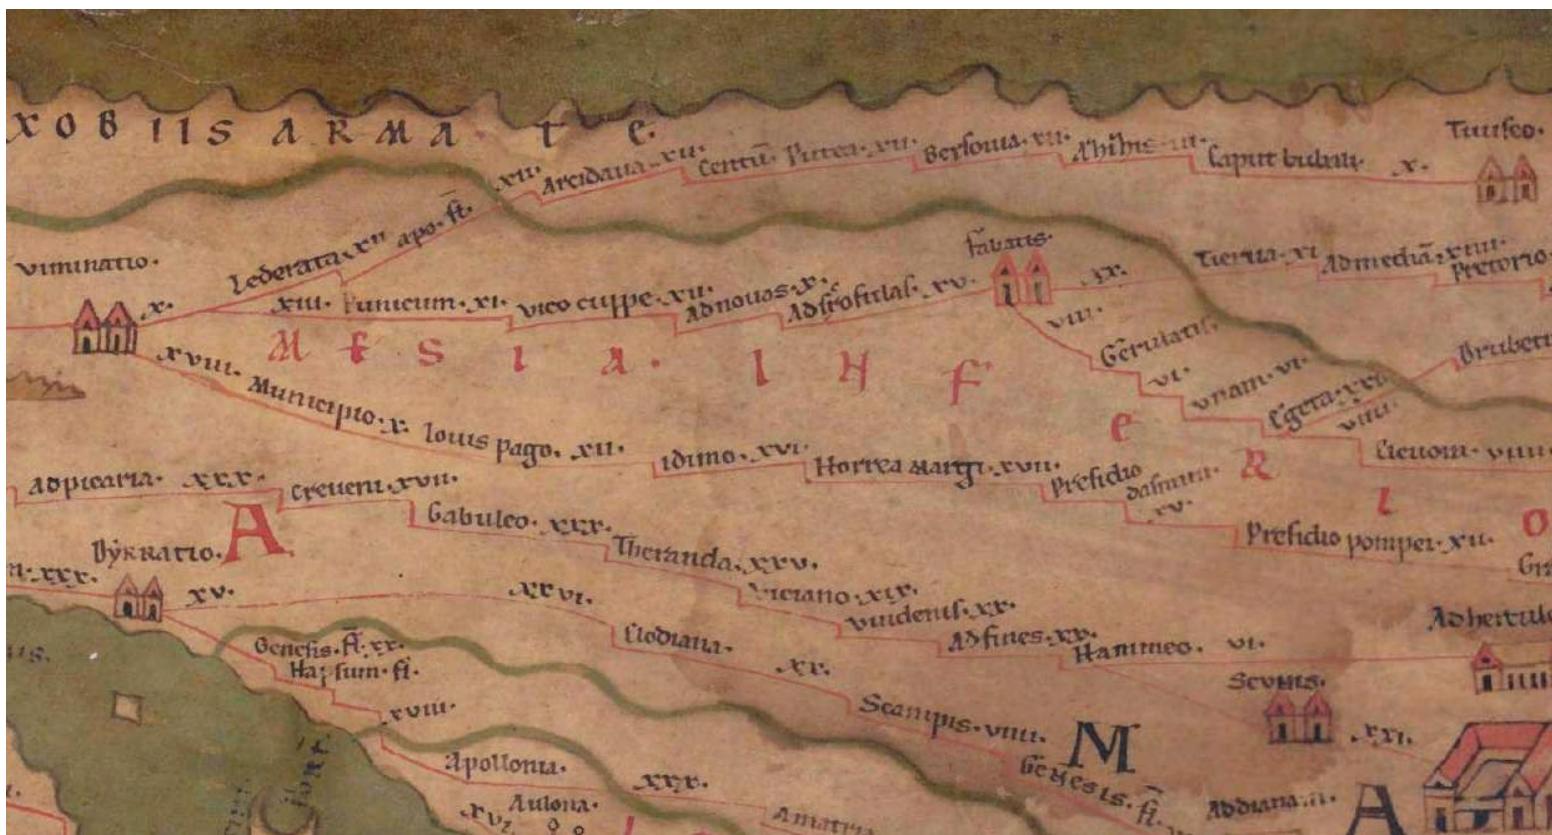 XOBIIS ARMATE.
Tiuisco.
xii. Arcidaua xii. Centū Putea. xii. Bersouia. xii. Ahihis. iii. Caput bubali. x.
Viminatio.
x. Lederata. xii
apo. fl.
xiii. Punicum. xi. Vico cuppe. xii. Ad nouas. x. Ad scrofulas. xv.
Faliatis.
xx. Tierua. xi. Ad mediā. xiiii. Pretorio.
viii. Gerulatis.
vi. Vnam. vi.
Egeta. xxi. Drubeti
viiii. Clevora. viiii.
MESIA. INFERIO
xviii. Municipio. x. Iouis pago. xii. idimo. xvi. Horrea Margi. xvii. Presidio
dasmini.
xv. Presidio pompei. xii.
Gr
Ad picaria. xxx. Creueni. xvii.
A
Gabuleo. xxx. Theranda. xxv.
Viciano. xix.
Vindenis. xx.
Ad fines. xx. Hammeo. vi.
Ad hercule
Dyrratio.
xxx. xv. xxvi. Clodiana.
xx. Scampis. viiii.
Genesis. fl. xx.
Hapsum. fl.
xviii.
Scunis.
xxi.
M
Genesis. fl.
Apollonia. xxx. Amatria
Aulona.
xvi
Ad diana. A